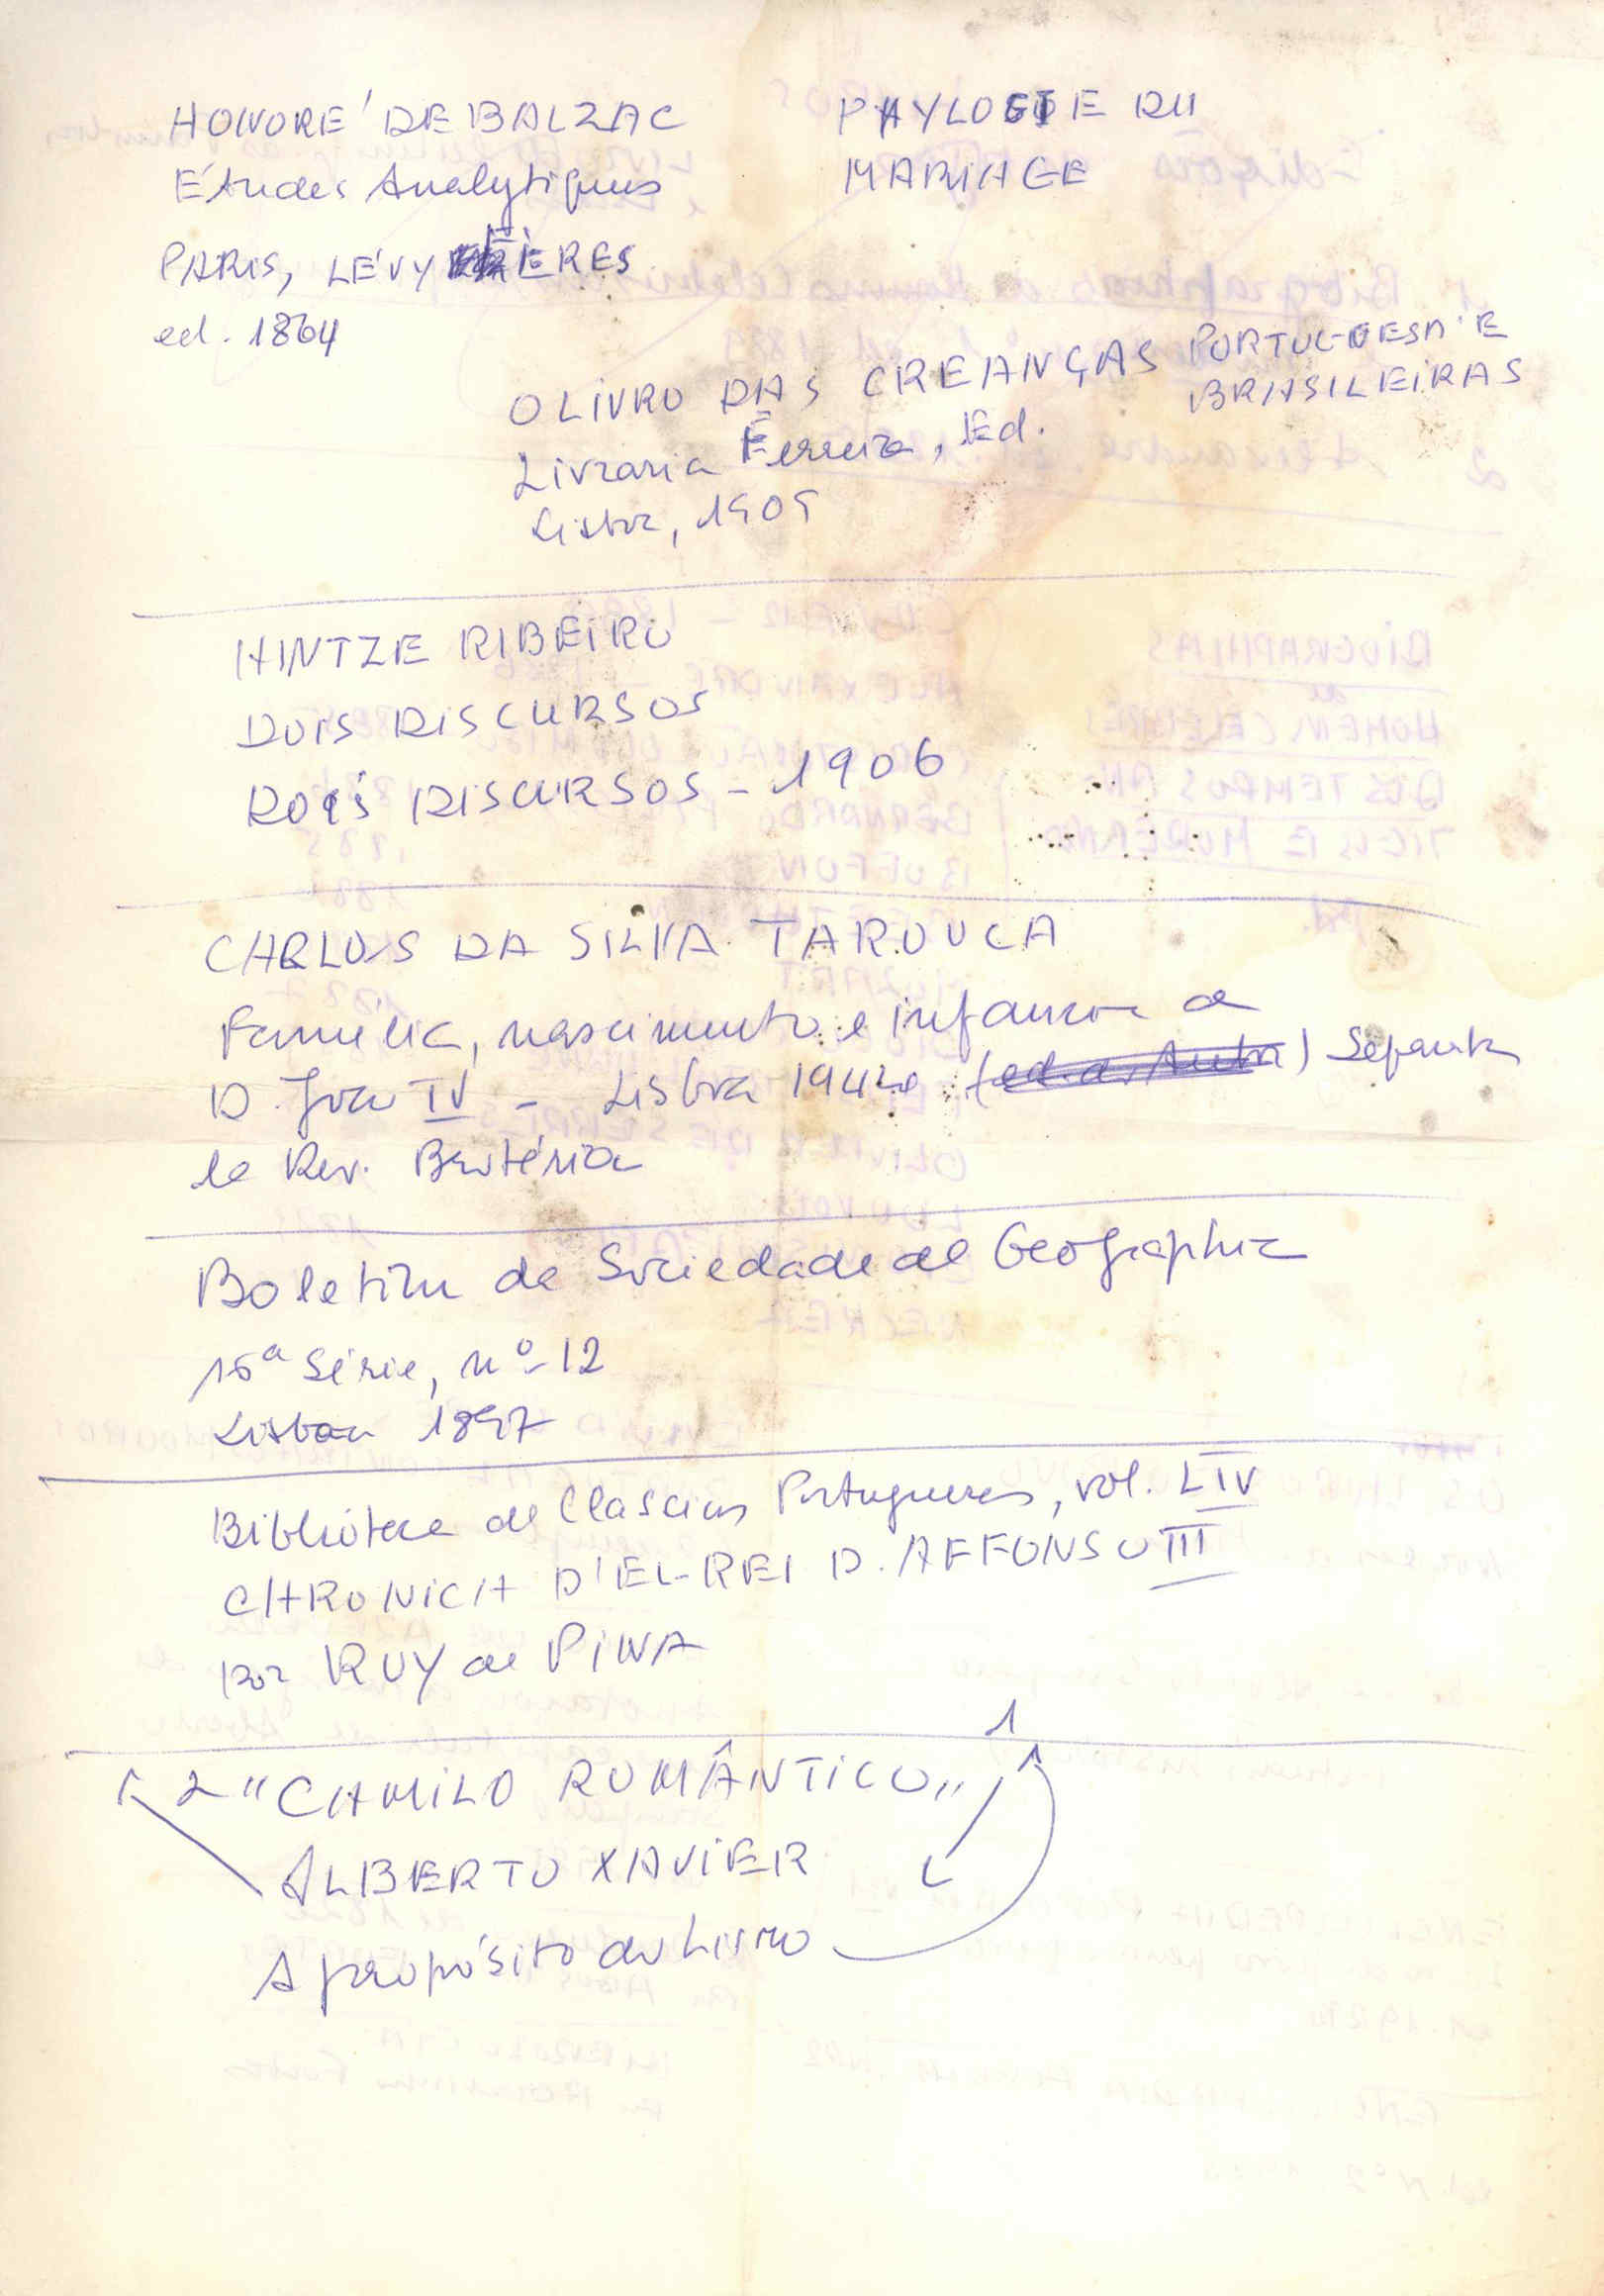 HONORÉ DE BALZAC
Études Analytiques
PARIS, LÉVY FRÈRES
ed. 1864
PHYLOGIE DU
MARIAGE
O LIVRO DAS CREANÇAS PORTUGUESAS E
BRASILEIRAS
Livraria Ferreira, Ed.
Lisboa, 1909
HINTZE RIBEIRO
DOIS DISCURSOS
DOIS DISCURSOS - 1906
CARLOS DA SILVA TAROUCA
Família, nascimento e infancia de
D. João IV - Lisboa 1944 (ed. do Autor) Separata
da Rev. Brotéria
Boletim da Sociedade de Geographia
16ª Série, nº 12
Lisboa 1897
Biblioteca de Classicos Portugueses, vol. LIV
CHRONICA D'EL-REI D. AFFONSO III
por RUY de PINA
1
2 "CAMILO ROMÂNTICO"
ALBERTO XAVIER
A propósito do Livro